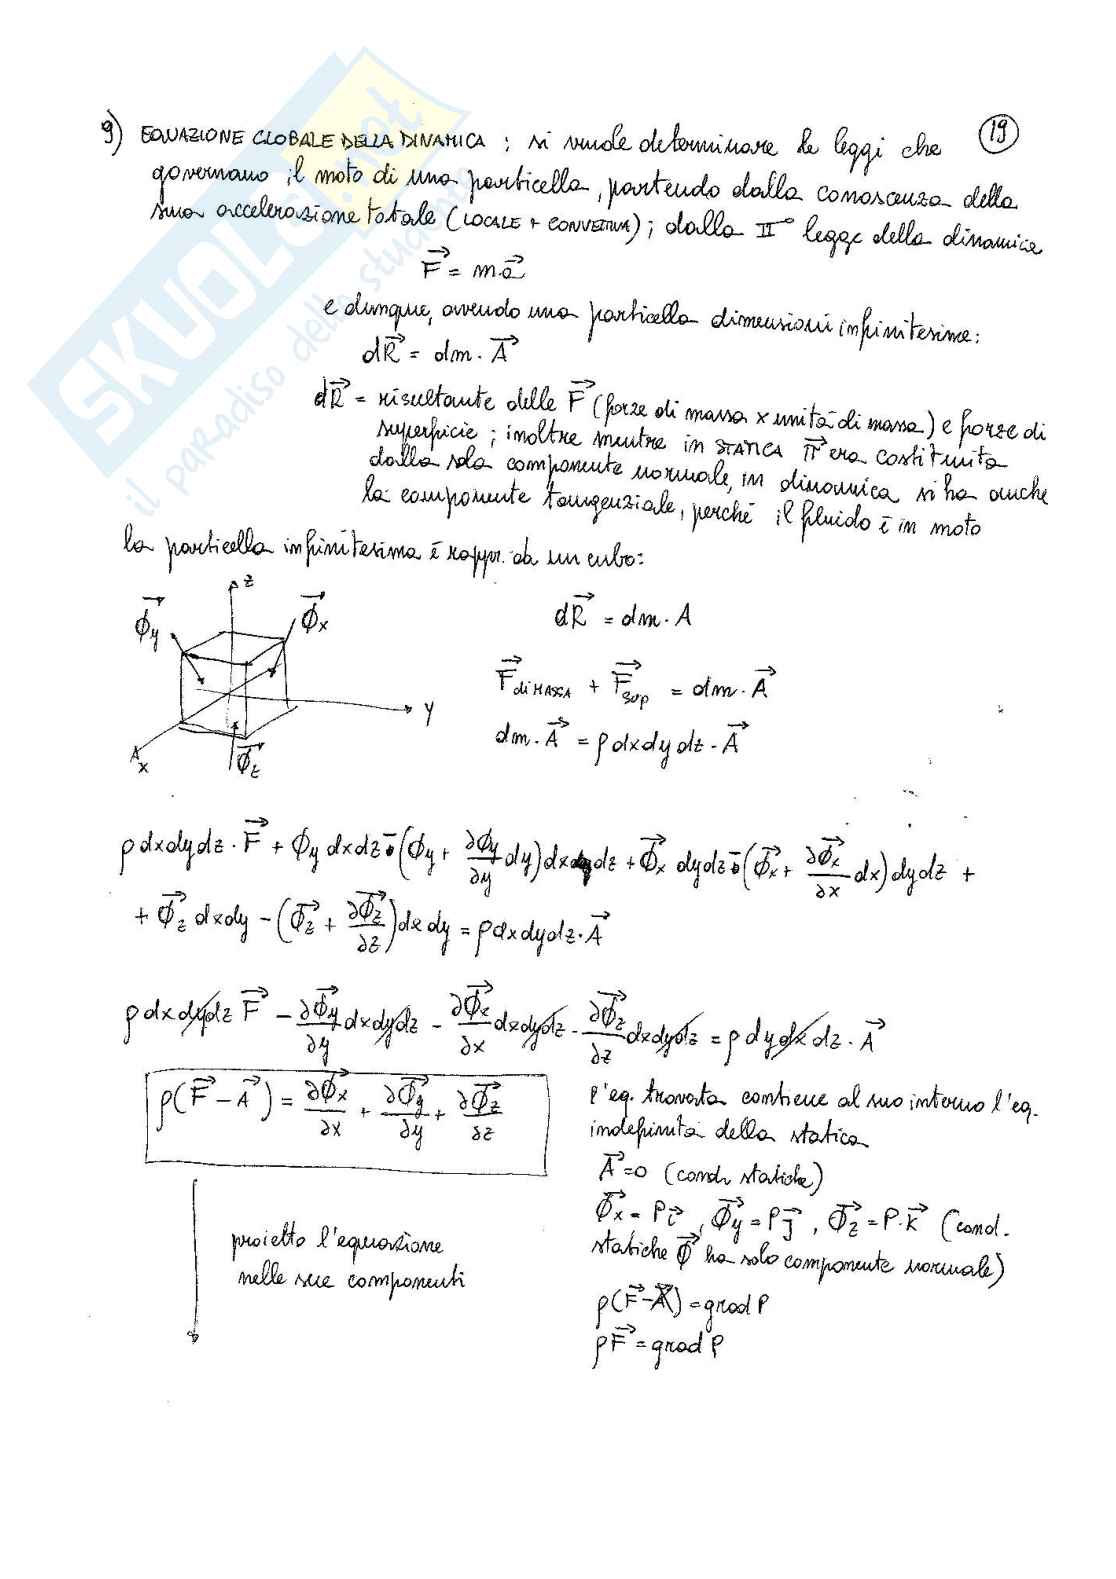 19
9) EQUAZIONE GLOBALE DELLA DINAMICA : si vuole determinare le leggi che
governano il moto di una particella, partendo dalla conoscenza della
sua accelerazione totale (LOCALE + CONVETTIVA) ; dalla II° legge della dinamica
F⃗ = m a⃗
e dunque, avendo una particella dimensioni infinitesime:
dR⃗ = dm · A⃗
dR⃗ = risultante delle F⃗ (forze di massa x unità di massa) e forze di
superficie ; inoltre mentre in STATICA π⃗ era costituita
dalla sola componente normale, in dinamica si ha anche
la componente tangenziale, perché il fluido è in moto
la particella infinitesima è rappr. da un cubo:
z
ϕ⃗y ϕ⃗x
y
x
ϕ⃗z
dR⃗ = dm · A
F⃗ di MASSA + F⃗ sup = dm · A⃗
dm · A⃗ = ρ dx dy dz · A⃗
ρ dx dy dz · F⃗ + ϕy dx dz - (ϕy + ∂ϕy/∂y dy) dx dz + ϕ⃗x dy dz - (ϕ⃗x + ∂ϕ⃗x/∂x dx) dy dz +
+ ϕ⃗z dx dy - (ϕ⃗z + ∂ϕ⃗z/∂z) dx dy = ρ dx dy dz · A⃗
ρ dx dy dz F⃗ - ∂ϕ⃗y/∂y dx dy dz - ∂ϕ⃗x/∂x dx dy dz - ∂ϕ⃗z/∂z dx dy dz = ρ dy dx dz · A⃗
ρ(F⃗ - A⃗) = ∂ϕ⃗x/∂x + ∂ϕ⃗y/∂y + ∂ϕ⃗z/∂z
proietto l'equazione
nelle sue componenti
l'eq. trovata contiene al suo interno l'eq.
indefinita della statica
A⃗ = 0 (cond. statiche)
ϕ⃗x = P i⃗ , ϕ⃗y = P j⃗ , ϕ⃗z = P · k⃗ (cond.
statiche ϕ⃗ ha solo componente normale)
ρ(F⃗ - A⃗) = grad P
ρF⃗ = grad P
SKUOLA.net
il paradiso dello studente